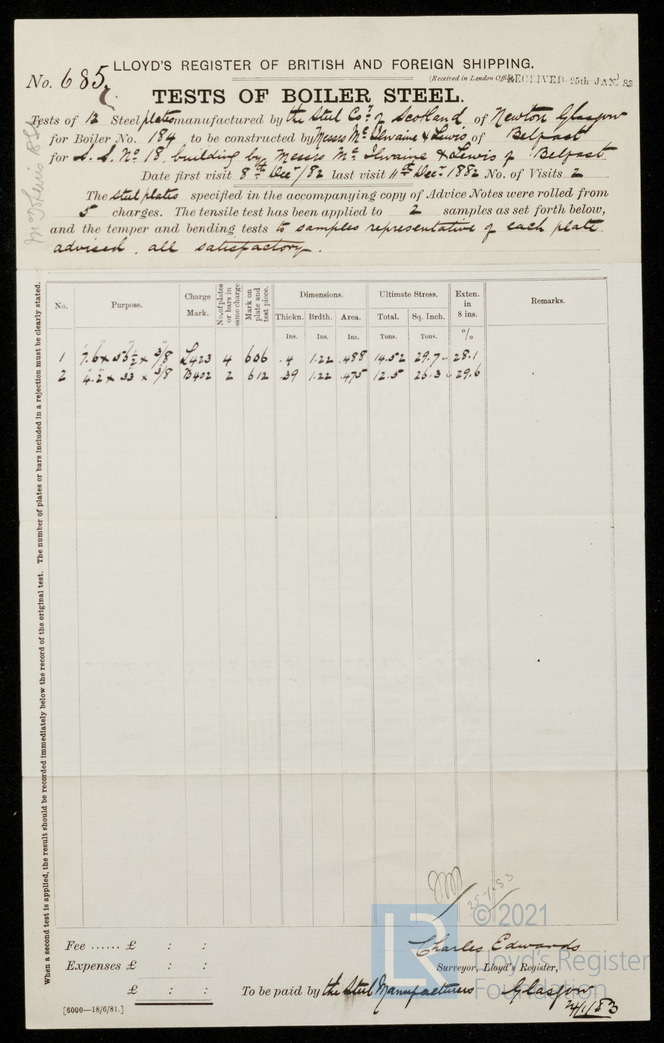 LLOYD'S REGISTER OF BRITISH AND FOREIGN SHIPPING.
No. 685
(Received in London Office RECEIVED 25th JAN. 83
TESTS OF BOILER STEEL.
Tests of 12 Steel plates manufactured by the Steel Coy. of Scotland of Newton Glasgow
for Boiler No. 184 to be constructed by Messrs Mc. Ilwaine & Lewis, of Belfast
for S. S. No 18, building by Messrs Mc. Ilwaine & Lewis of Belfast
Date first visit 8th Decr/82 last visit 11th Decr 1882 No. of Visits 2
The steel plates specified in the accompanying copy of Advice Notes were rolled from
5 charges. The tensile test has been applied to 2 samples as set forth below,
and the temper and bending tests to samples representative of each plate
advised, all satisfactory.
When a second test is applied, the result should be recorded immediately below the record of the original test. The number of plates or bars included in a rejection must be clearly stated.
No. Purpose. Charge Mark. No. of plates or bars in same charge Mark on plate and test piece. Dimensions. Ultimate Stress. Exten. in 8 ins. Remarks.
Thickn. Brdth. Area. Total. Sq. Inch.
Ins. Ins. Ins. Tons. Tons. %
1 7.6 x 53½ x 3/8 L423 4 606 .4 1.22 .488 14.52 29.7 28.1
2 4.2 x 33 x 3/8 B402 2 612 .39 1.22 .475 12.5 26.3 29.6
25.1.83
© 2021
Lloyd's Register
Foundation
Fee ...... £ : :
Charles Edwards
Expenses £ : :
Surveyor, Lloyd's Register,
£ : :
To be paid by the Steel Manufacturers Glasgow
24/1/83
[6000—18/6/81.]